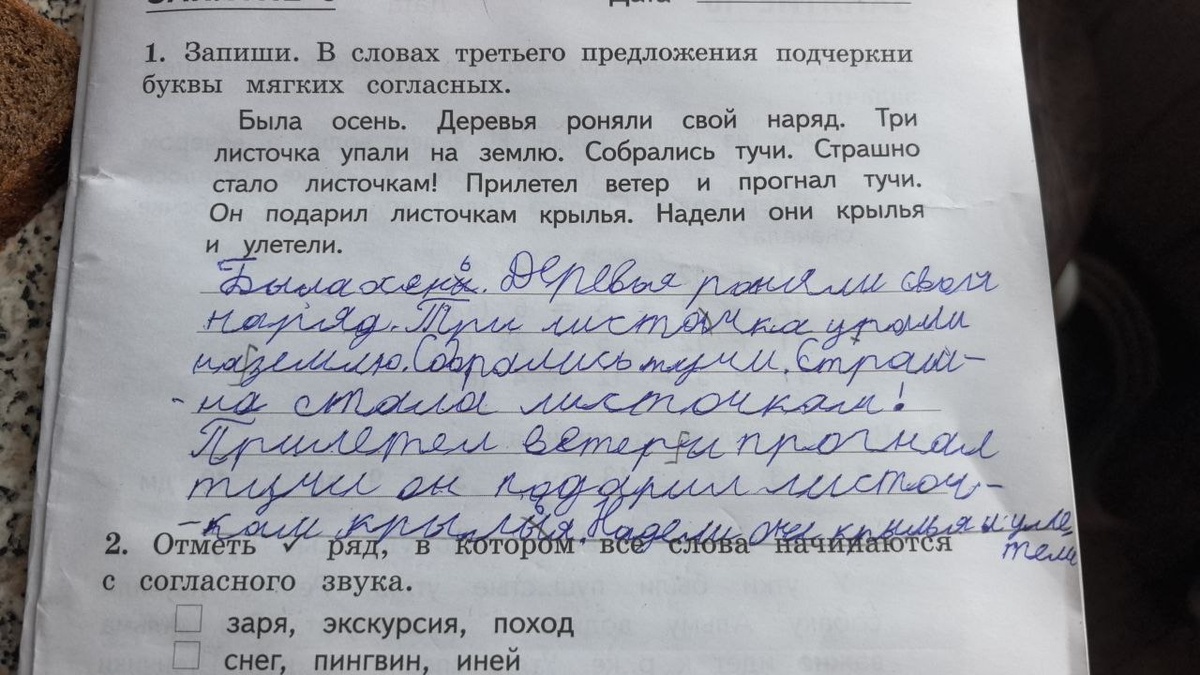 1. Запиши. В словах третьего предложения подчеркни
буквы мягких согласных.
Была осень. Деревья роняли свой наряд. Три
листочка упали на землю. Собрались тучи. Страшно
стало листочкам! Прилетел ветер и прогнал тучи.
Он подарил листочкам крылья. Надели они крылья
и улетели.
Была осень. Деревья роняли свой
наряд. Три листочка упали
на землю. Собрались тучи. Страш-
-на стала листочкам!
Прилетел ветер и прогнал
тучи он подарил листоч-
-кам крылья. Надели они крылья и уле
тели
2. Отметь ✓ ряд, в котором все слова начинаются
с согласного звука.
заря, экскурсия, поход
снег, пингвин, иней